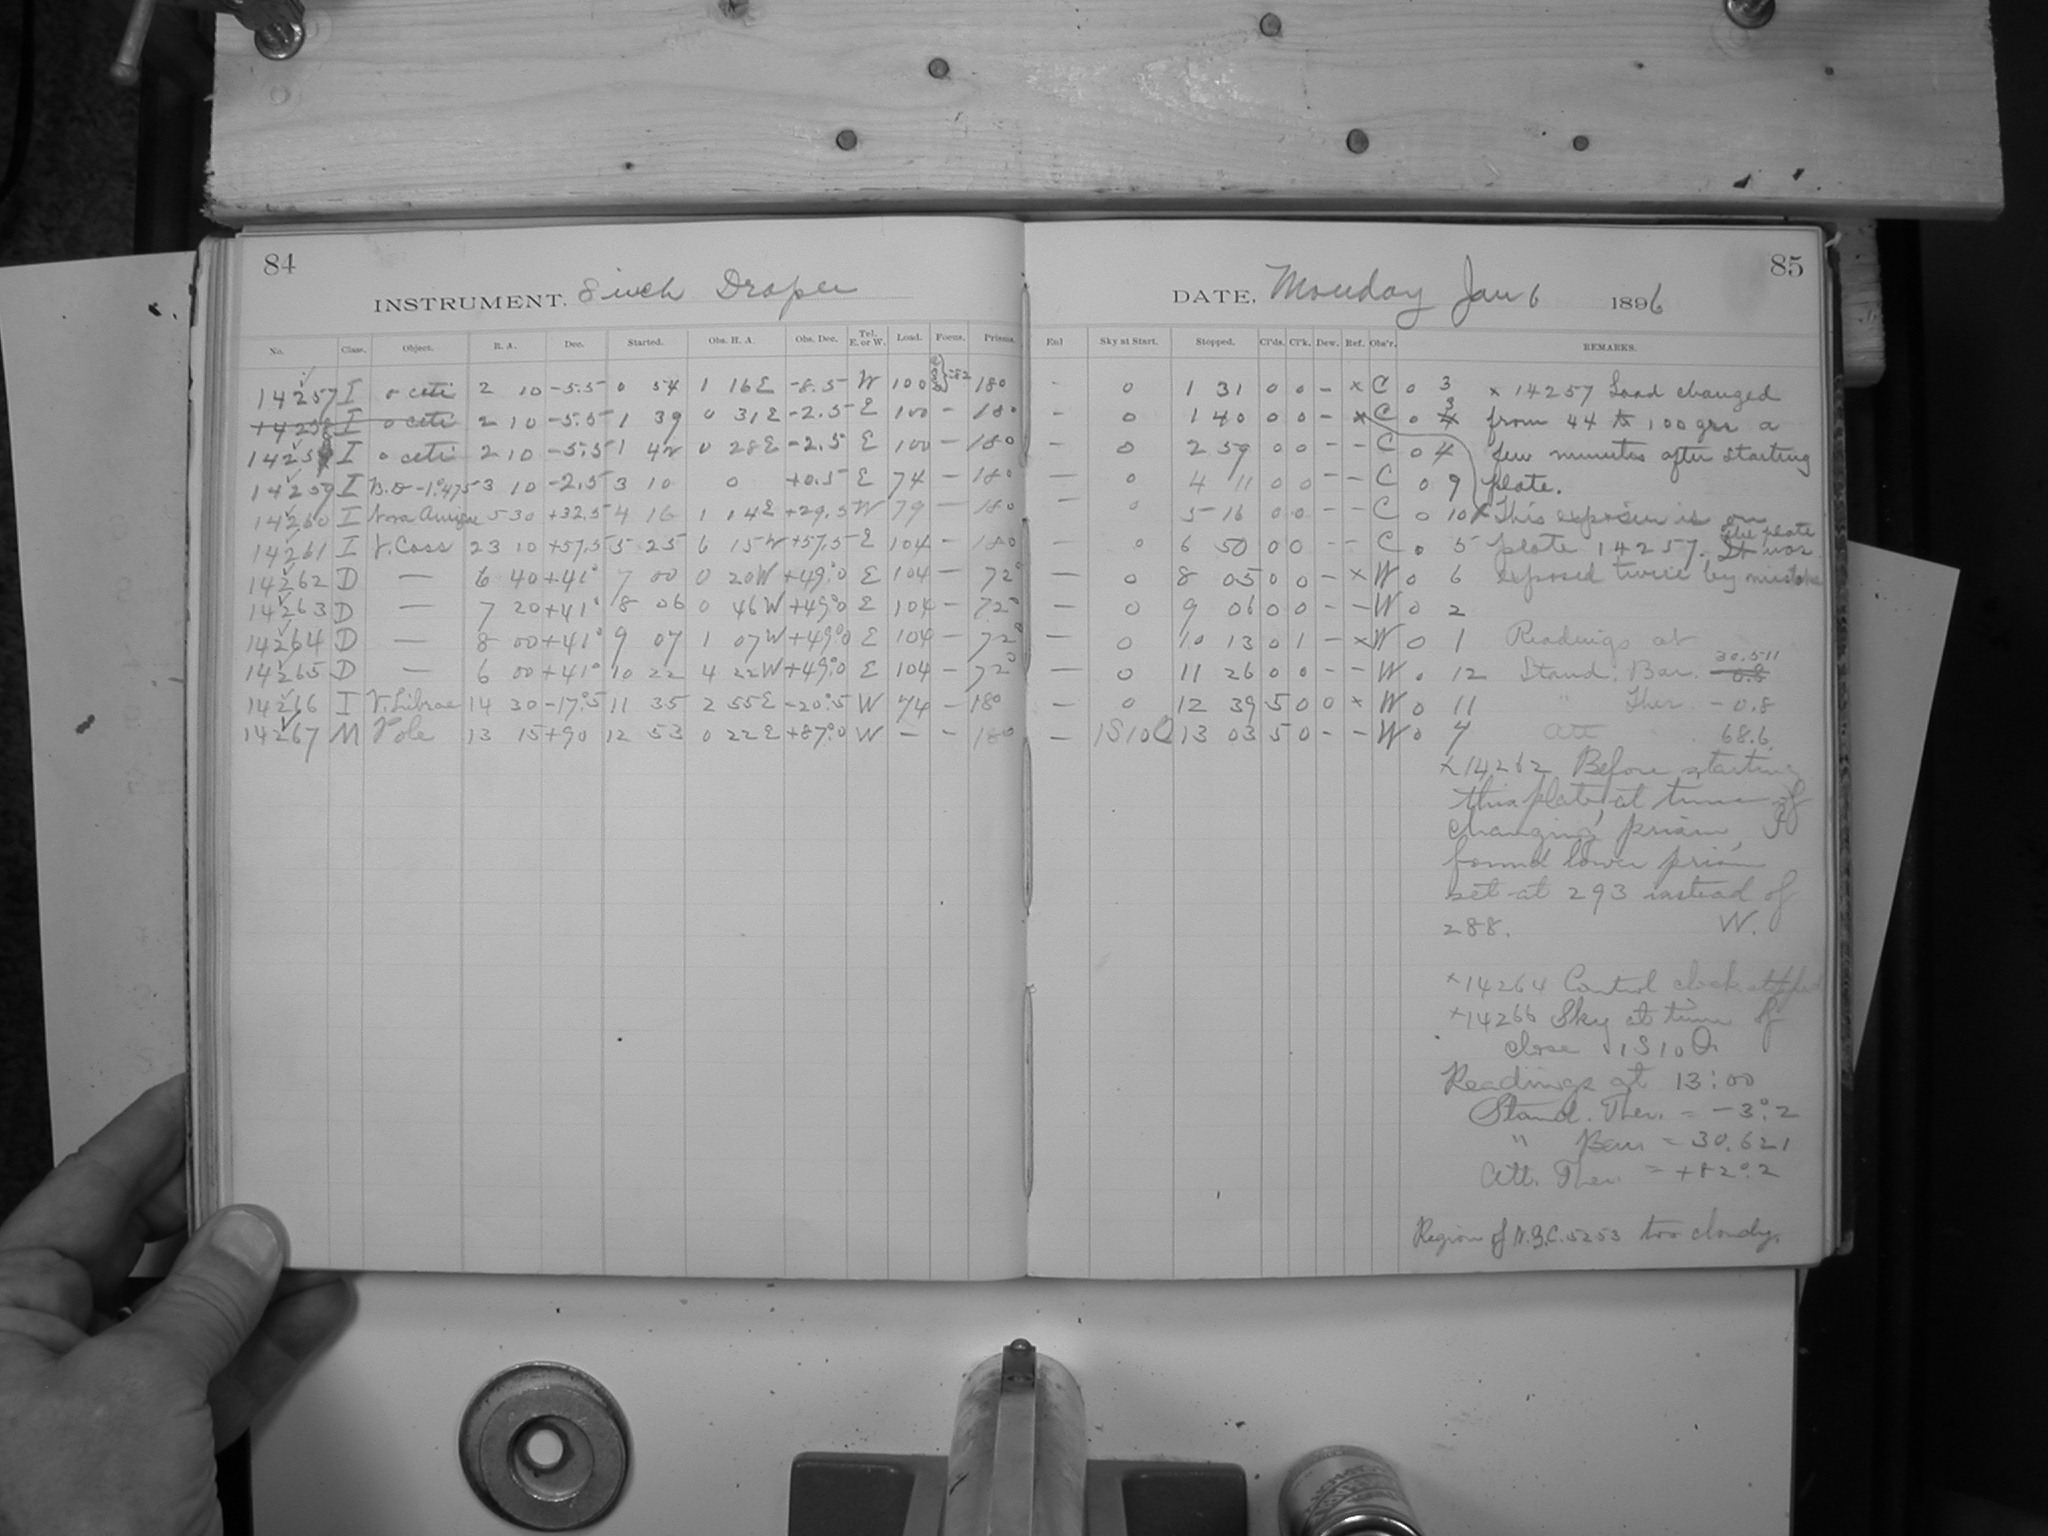 84
INSTRUMENT. 8 inch Draper
No. Class. Object. R. A. Dec. Started. Obs. H. A. Obs. Dec. Tel. E. or W. Load. Focus. Prisms.
14257 I o ceti 2 10 -5.5 0 54 1 16E -8.5 W 100 180
14258 I o ceti 2 10 -5.5 1 39 0 31E -2.5 E 100 - 180
14258 I o ceti 2 10 -5.5 1 42 0 28E -2.5 E 100 - 180
14259 I B.D -1.°475 3 10 -2.5 3 10 0 +0.5 E 74 - 180
14260 I Nova Aurigae 5 30 +32.5 4 16 1 14E +29.5 W 79 - 180
14261 I γ. Cass 23 10 +57.5 5 25 6 15W +57.5 E 104 - 180
14262 D — 6 40 +41° 7 00 0 20W +49.°0 E 104 - 72°
14263 D — 7 20 +41° 8 06 0 46W +49.°0 E 104 - 72°
14264 D — 8 00 +41° 9 07 1 07W +49.°0 E 104 - 72°
14265 D — 6 00 +41° 10 22 4 22W +49.°0 E 104 - 72°
14266 I V. Librae 14 30 -17.°5 11 35 2 55E -20.°5 W 74 - 180
14267 M Pole 13 15 +90 12 53 0 22E +87.°0 W - - 180
85
DATE, Monday Jan 6 1896
Sky at Start. Stopped. Cl'ds. Cl'k. Dew. Ref. Obs'r. REMARKS.
- 0 1 31 0 0 - x C 0 3
- 0 1 40 0 0 - x C 0 3
- 0 2 59 0 0 - - C 0 4
- 0 4 11 0 0 - - C 0 9
- 0 5 16 0 0 - - C 0 10
- 0 6 50 0 0 - - C 0 5
- 0 8 05 0 0 - x W 0 6
- 0 9 06 0 0 - - W 0 2
- 0 10 13 0 1 - x W 0 1
- 0 11 26 0 0 - - W 0 12
- 0 12 39 5 0 0 x W 0 11
- 1S10Q 13 03 5 0 - - W 0 7
x 14257 Load changed
from 44 to 100 grs a
few minutes after starting
plate.
x This exposure is on
plate 14257. The plate was
exposed twice by mistake
Readings at
Stand. Bar. 30.511
" Ther. -0.8
Att 68.6
x 14262 Before starting
this plate, at time of
changing prism, I
found lower prism
set at 293 instead of
288. W.
x 14264 Control clock stopped
x 14266 Sky at time of
close 1S10Q
Readings at 13:00
Stand. Ther. = -3.°2
" Bar = 30.621
Att. Ther. = +82.°2
Region of N.G.C. 5253 too cloudy.